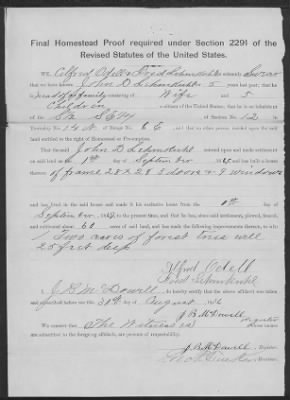 Final Homestead Proof required under Section 2291 of the
Revised Statutes of the United States.
We, Alfred Odell & Fred Schmekuhl solemnly Swear
that we have known John D Schmekuhl 5 years last past; that he
is head of a family consisting of Wife and 5
Children
citizen of the United States; that he is an inhabitant of
the S½ SE¼ of Section No. 12 in
Township No. 14 S of Range No. 6 E, and that no other person resided upon the said
land entitled to the right of Homestead or Pre-emption.
That the said John D Schmekuhl entered upon and made settlement on
said land on 1st September and has built a house
thereon
of frame 28 x 28 3 doors & 9 windows
and has lived in the said house and made it his exclusive home from the day of
September to the present time, and that he has, since said settlement, plowed, fenced,
and cultivated 60 acres of said land, and has made the following improvements thereon, to wit:
Two acres of forest trees well
25 feet deep
Alfred Odell
Fred Schmekuhl
I, J B McDowell, do hereby certify that the above affidavit was taken
and subscribed before me this 30th day of August
J B McDowell
Register
We certify that The Witnesses
are
J B McDowell, Register
Receiver